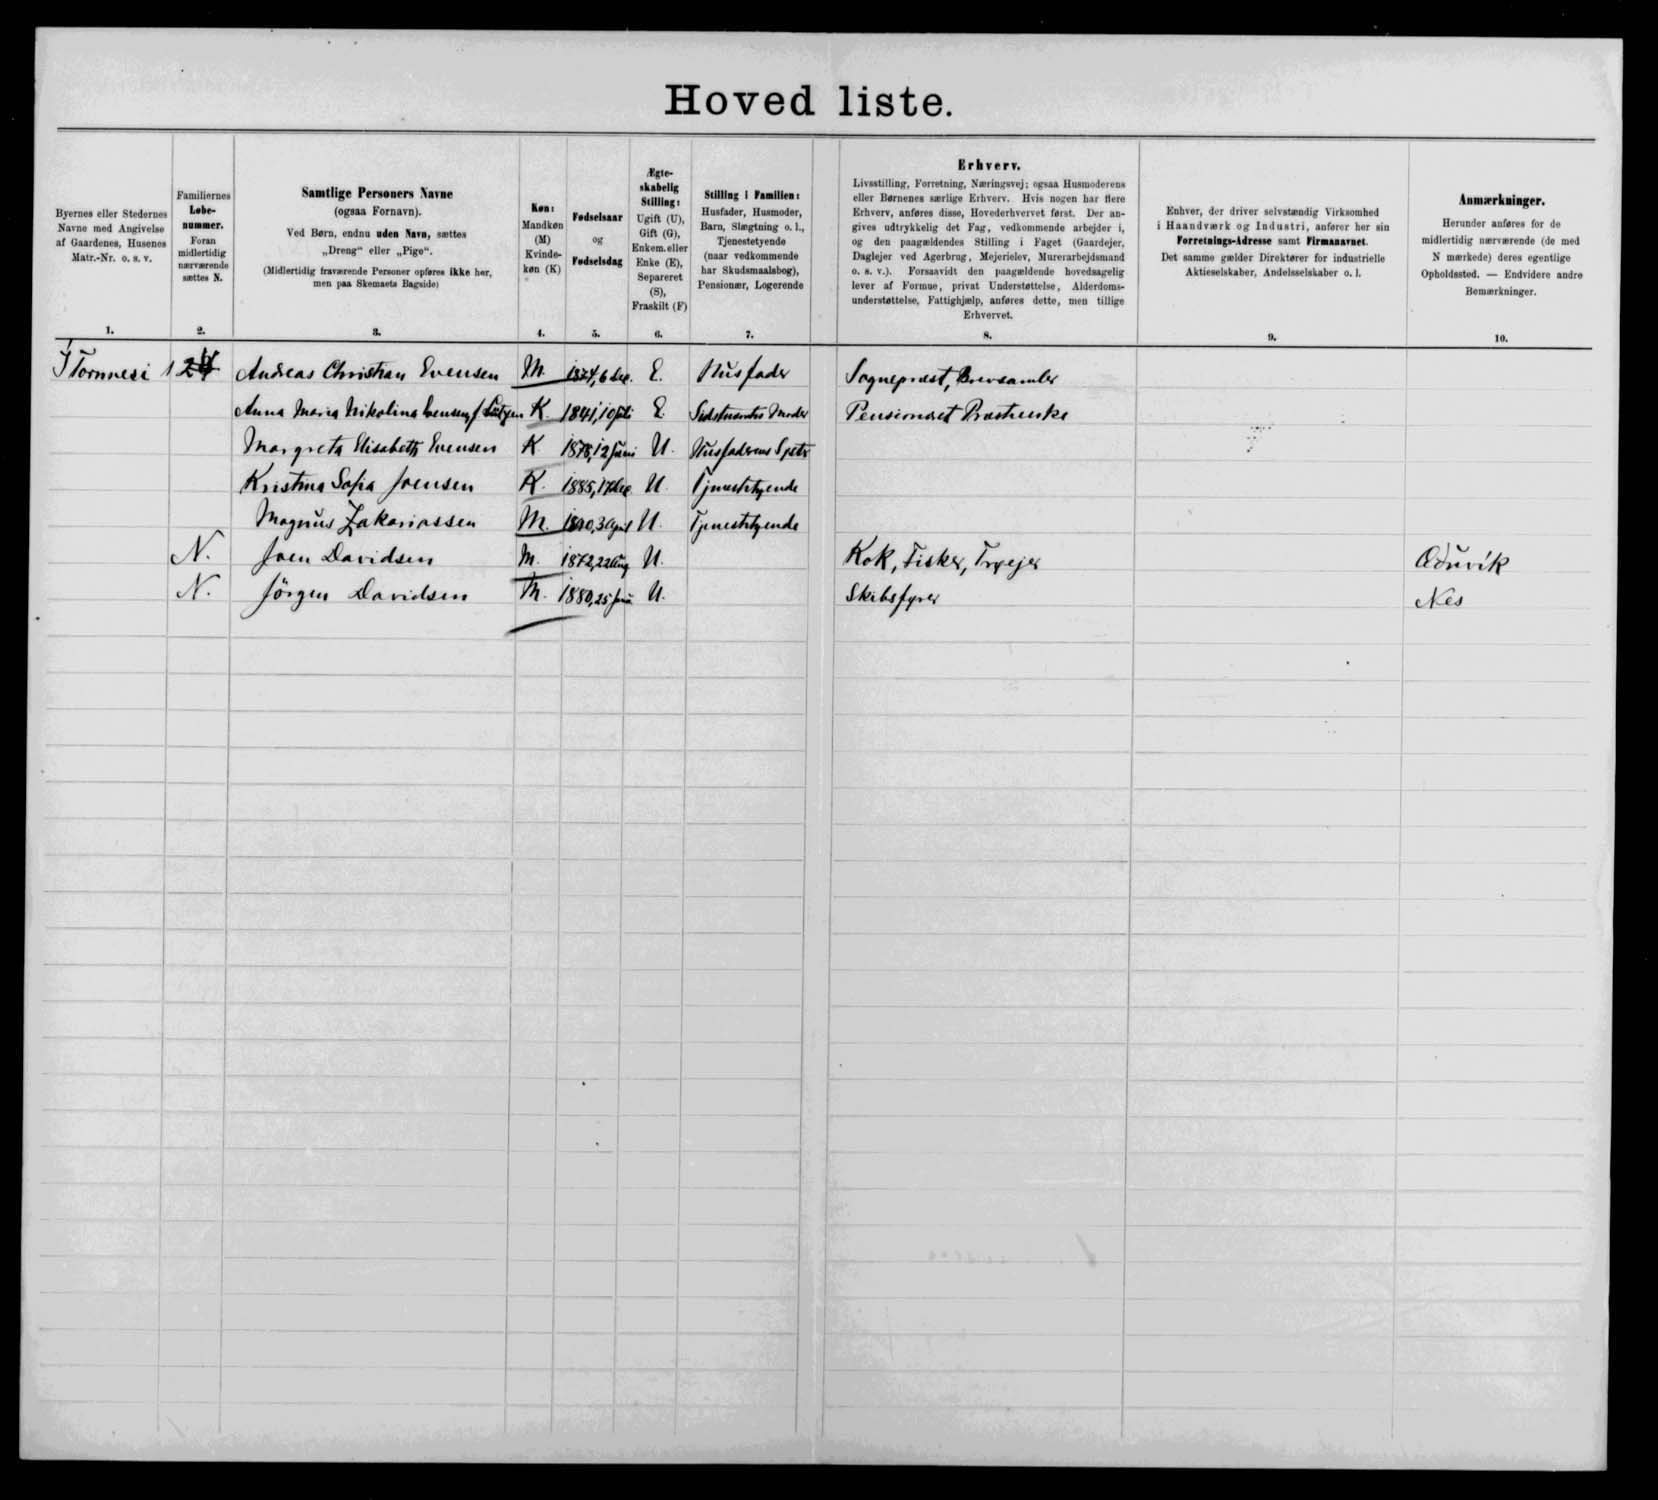 Hoved liste.
Byernes eller Stedernes
Navne med Angivelse
af Gaardenes, Husenes
Matr.-Nr. o. s. v.
1.
Familiernes
Løbe-
nummer.
Foran
midlertidig
nærværende
sættes N.
2.
Samtlige Personers Navne
(ogsaa Fornavn).
Ved Børn, endnu uden Navn, sættes
„Dreng“ eller „Pige“.
(Midlertidig fraværende Personer opføres ikke her,
men paa Skemaets Bagside)
3.
Køn:
Mandkøn
(M)
Kvinde-
køn (K)
4.
Fødselsaar
og
Fødselsdag
5.
Ægte-
skabelig
Stilling:
Ugift (U),
Gift (G),
Enkem. eller
Enke (E),
Separeret
(S),
Fraskilt (F)
6.
Stilling i Familien:
Husfader, Husmoder,
Barn, Slægtning o. l.,
Tjenestetyende
(naar vedkommende
har Skudsmaalsbog),
Pensionær, Logerende
7.
Erhverv.
Livsstilling, Forretning, Næringsvej; ogsaa Husmoderens
eller Børnenes særlige Erhverv. Hvis nogen har flere
Erhverv, anføres disse, Hovederhvervet først. Der an-
gives udtrykkelig det Fag, vedkommende arbejder i,
og den paagældendes Stilling i Faget (Gaardejer,
Daglejer ved Agerbrug, Mejerielev, Murerarbejdsmand
o. s. v.). Forsaavidt den paagældende hovedsagelig
lever af Formue, privat Understøttelse, Alderdoms-
understøttelse, Fattighjælp, anføres dette, men tillige
Erhvervet.
8.
Enhver, der driver selvstændig Virksomhed
i Haandværk og Industri, anfører her sin
Forretnings-Adresse samt Firmanavnet.
Det samme gælder Direktører for industrielle
Aktieselskaber, Andelsselskaber o. l.
9.
Anmærkninger.
Herunder anføres for de
midlertidig nærværende (de med
N mærkede) deres egentlige
Opholdssted. — Endvidere andre
Bemærkninger.
10.
I Tornnesi Andreas Christian Evensen M. 1874, 6 Dec. E. Husfader Sognepræst, Brevsamler
Anna Maria Nikolina Evensen f. Lützen K. 1841, 10 Juli E. Moder Pensioneret Præsteenke
Margreta Elisabeth Evensen K. 1878, 12 Juni U. Husfaderens
Kristina Sofia Joensen K. 1885, 17 Dec. U. Tjenestetyende
Magnus Zakariassen M. 3 April U. Tjenestetyende
N. Joen Davidsen M. 1872, 22 Aug U. Kok, Fisker, Oduvik
N. Jörgen Davidsen M. 1880, 25 U. Skibsfyrer Nes